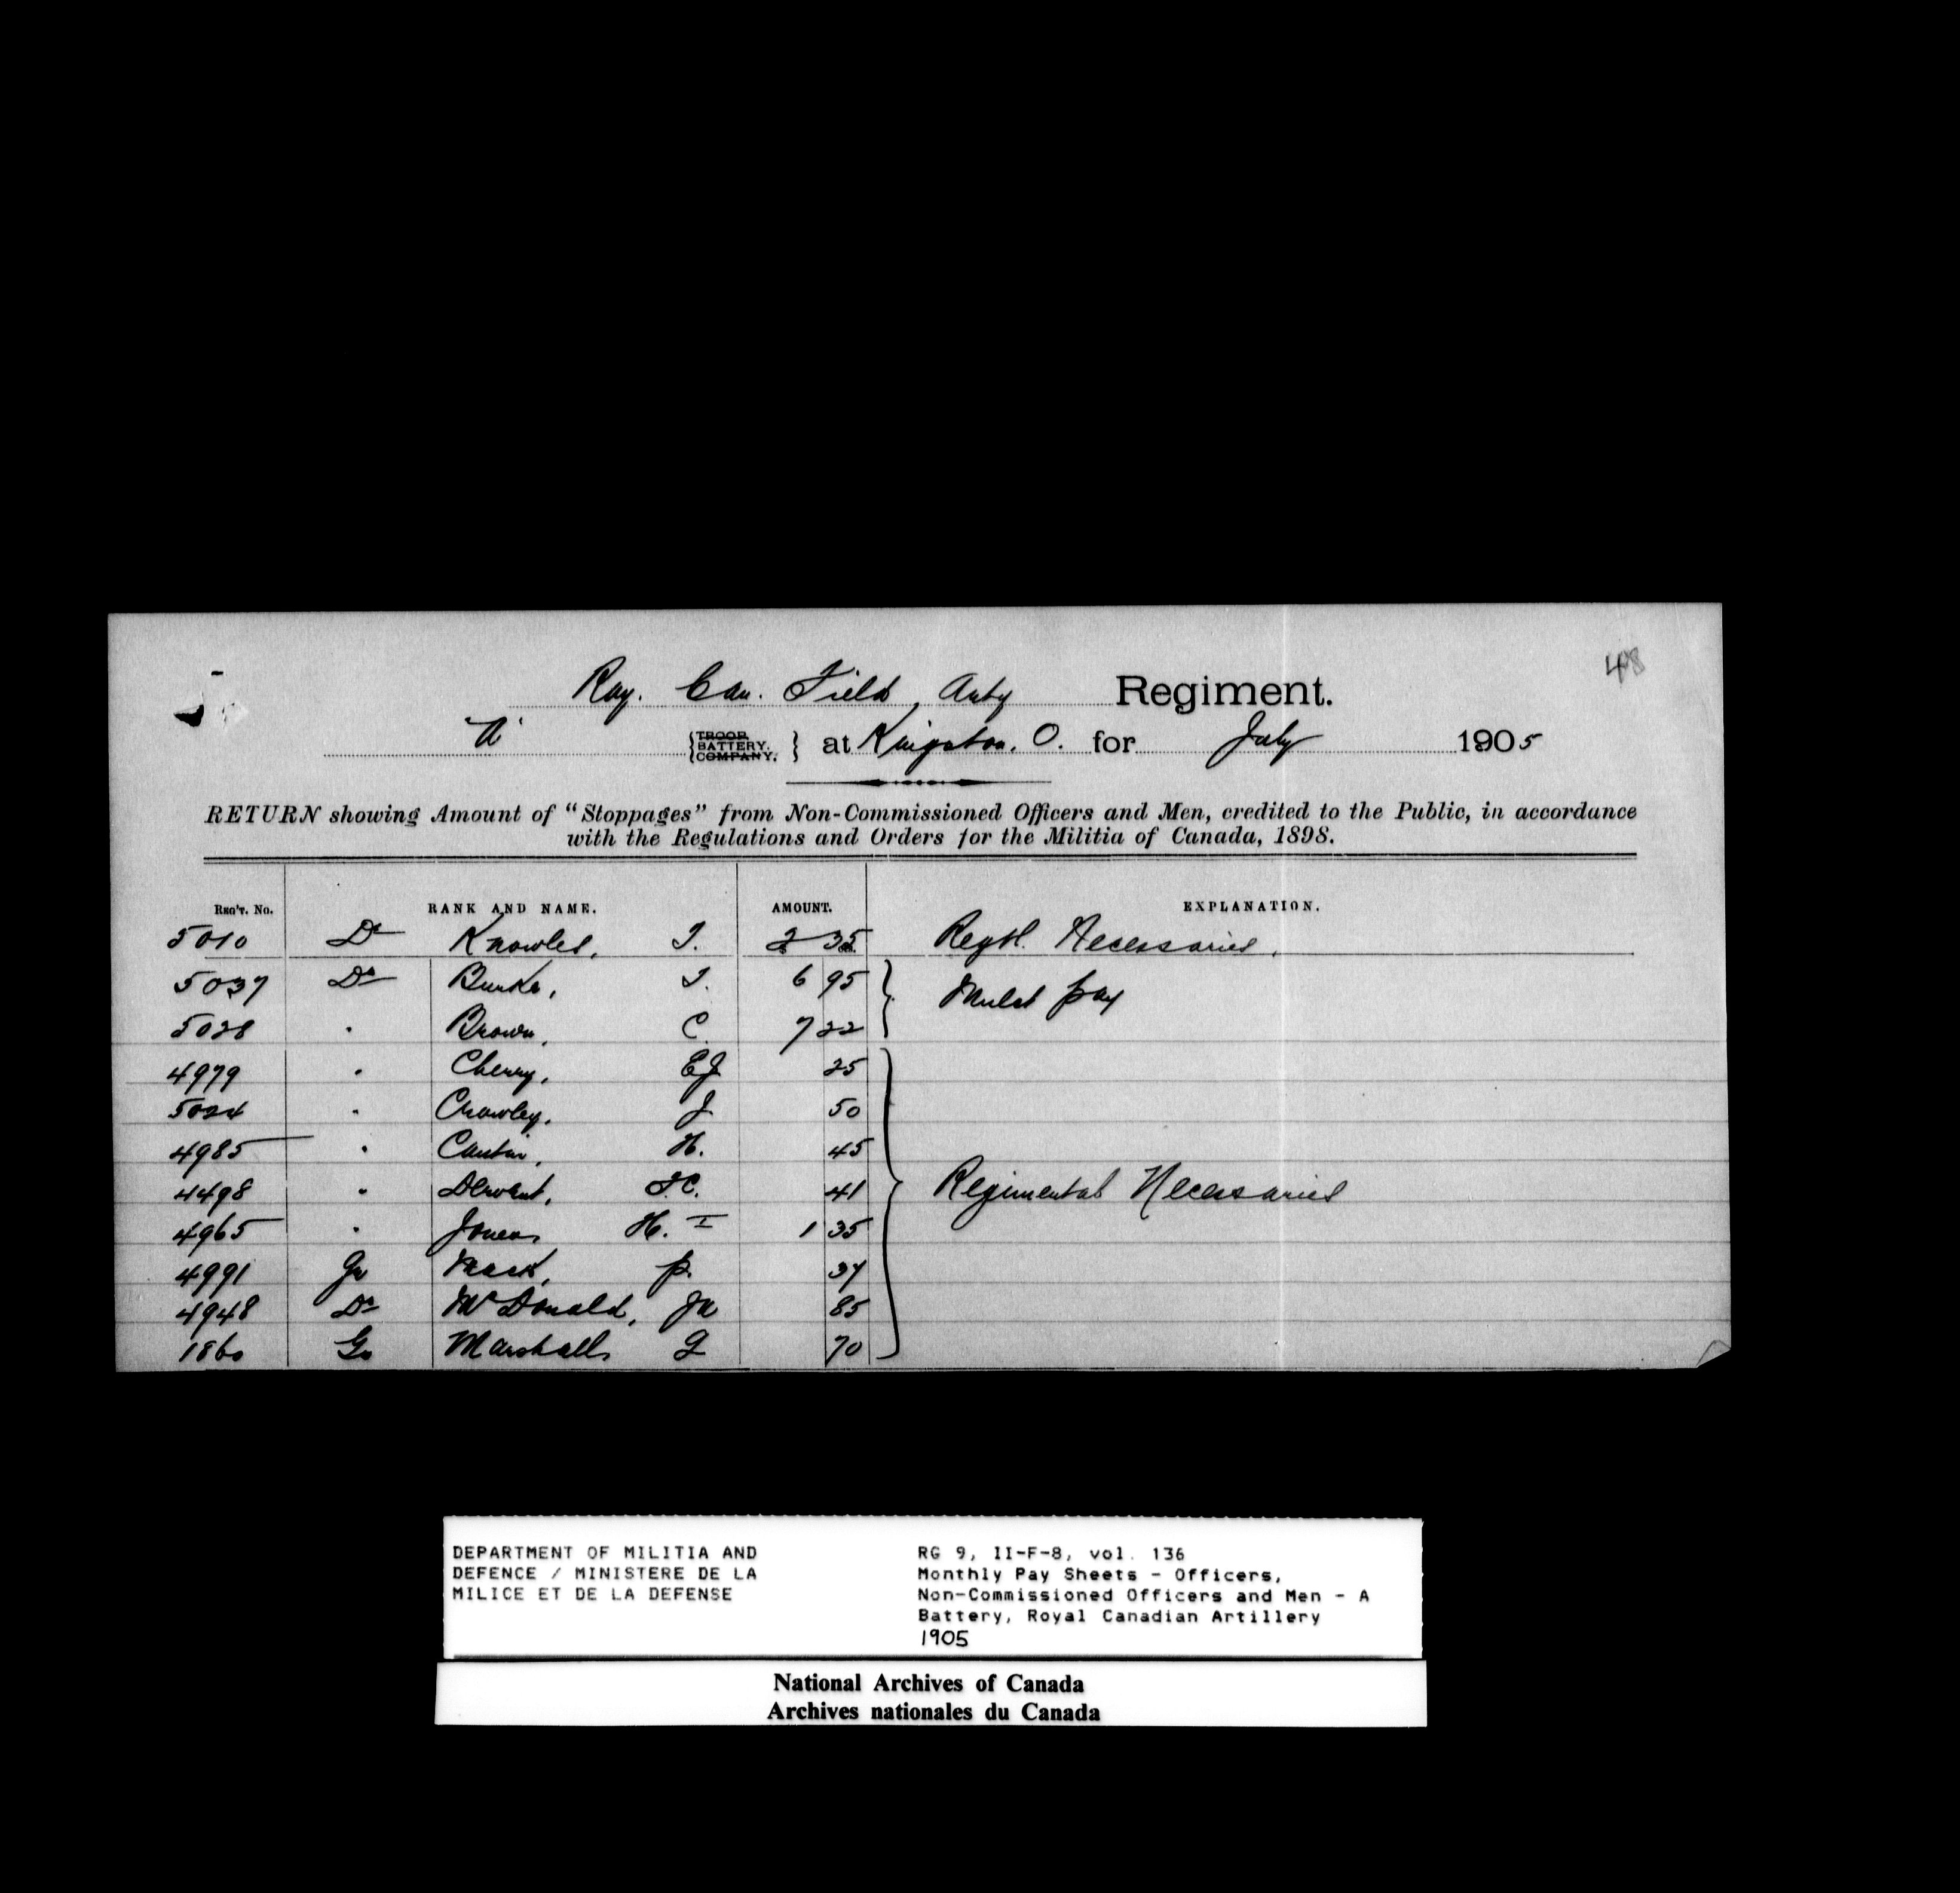 48
Roy. Can. Field, Arty Regiment.
"A" {TROOP. BATTERY. COMPANY.} at Kingston, O. for July 1905
RETURN showing Amount of “Stoppages” from Non-Commissioned Officers and Men, credited to the Public, in accordance
with the Regulations and Orders for the Militia of Canada, 1898.
REG'T. NO. RANK AND NAME. AMOUNT. EXPLANATION.
5010 Dr Knowles, J. 2 35 Regtl. Necessaries,
5037 Dr Burke, J. 6 95 Mulct pay
5028 " Brown, C. 7 22
4979 " Cherry, EJ 25
5024 " Crowley, J 50
4985 " Cantin, H. 45
4498 " Dervent, F.C. 41
4965 " Jones, H. I 1 35 Regimental Necessaries
4991 Gr P. 37
4948 Dr McDonald, JA 85
1860 Gr Marshall, G 70
DEPARTMENT OF MILITIA AND
DEFENCE / MINISTERE DE LA
MILICE ET DE LA DEFENSE
RG 9, II-F-8, vol. 136
Monthly Pay Sheets - Officers,
Non-Commissioned Officers and Men - A
Battery, Royal Canadian Artillery
1905
National Archives of Canada
Archives nationales du Canada